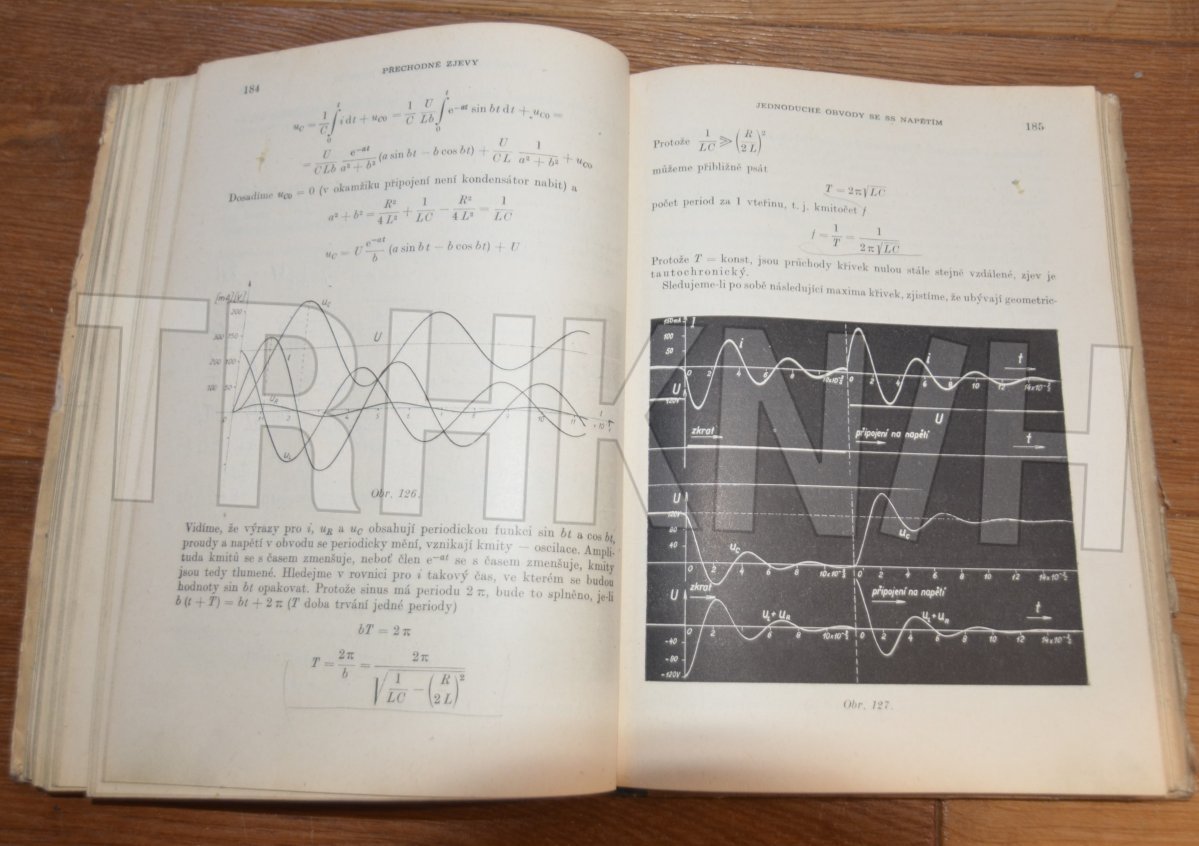 184
PŘECHODNÉ ZJEVY
u_C = 1/C ∫₀ᵗ i dt + u_C0 = 1/C U/Lb ∫₀ᵗ e^−at sin bt dt + u_C0 =
= U/CLb e^−at/(a² + b²) (a sin bt − b cos bt) + U/CL 1/(a² + b²) + u_C0
Dosadíme u_C0 = 0 (v okamžiku připojení není kondensátor nabit) a
a² + b² = R²/4L² + 1/LC − R²/4L² = 1/LC
u_C = U e^−at/b (a sin bt − b cos bt) + U
[mA] [V]
200
300 150
200 100
100 50
0
u_C
U
i
u_R
u_L
2
10
11
t
Obr. 126.
Vidíme, že výrazy pro i, u_R a u_C obsahují periodickou funkci sin bt a cos bt,
proudy a napětí v obvodu se periodicky mění, vznikají kmity — oscilace. Ampli-
tuda kmitů se s časem zmenšuje, neboť člen e^−at se s časem zmenšuje, kmity
jsou tedy tlumené. Hledejme v rovnici pro i takový čas, ve kterém se budou
hodnoty sin bt opakovat. Protože sinus má periodu 2 π, bude to splněno, je-li
b (t + T) = bt + 2 π (T doba trvání jedné periody)
bT = 2 π
T = 2π/b = 2π/√(1/LC − (R/2L)²)
JEDNODUCHÉ OBVODY SE SS NAPĚTÍM
185
Protože 1/LC ⩾ (R/2L)²
můžeme přibližně psát
T = 2π√LC
počet period za 1 vteřinu, t. j. kmitočet f
f = 1/T = 1/2π√LC
Protože T = konst, jsou průchody křivek nulou stále stejně vzdálené, zjev je
tautochronický.
Sledujeme-li po sobě následující maxima křivek, zjistíme, že ubývají geometric-
150mA I
100
50
i
i
t
0 2 4 6 8 10x10⁻³ 0 2 4 6 8 10 12 14x10⁻³
U
120V
U
zkrat
připojení na napětí
t
U
120V
80
40
u_C
u_C
0 2 4 6 8 10x10⁻³ 0 2 4 6 8 10 12 14x10⁻³
zkrat
připojení na napětí
U
u_L + u_R
u_L + u_R
t
0 2 6 8 10x10⁻³ 0 2 4 6 8 10 12 14x10⁻³
-40
-80
-120V
Obr. 127.
TRHKNIH